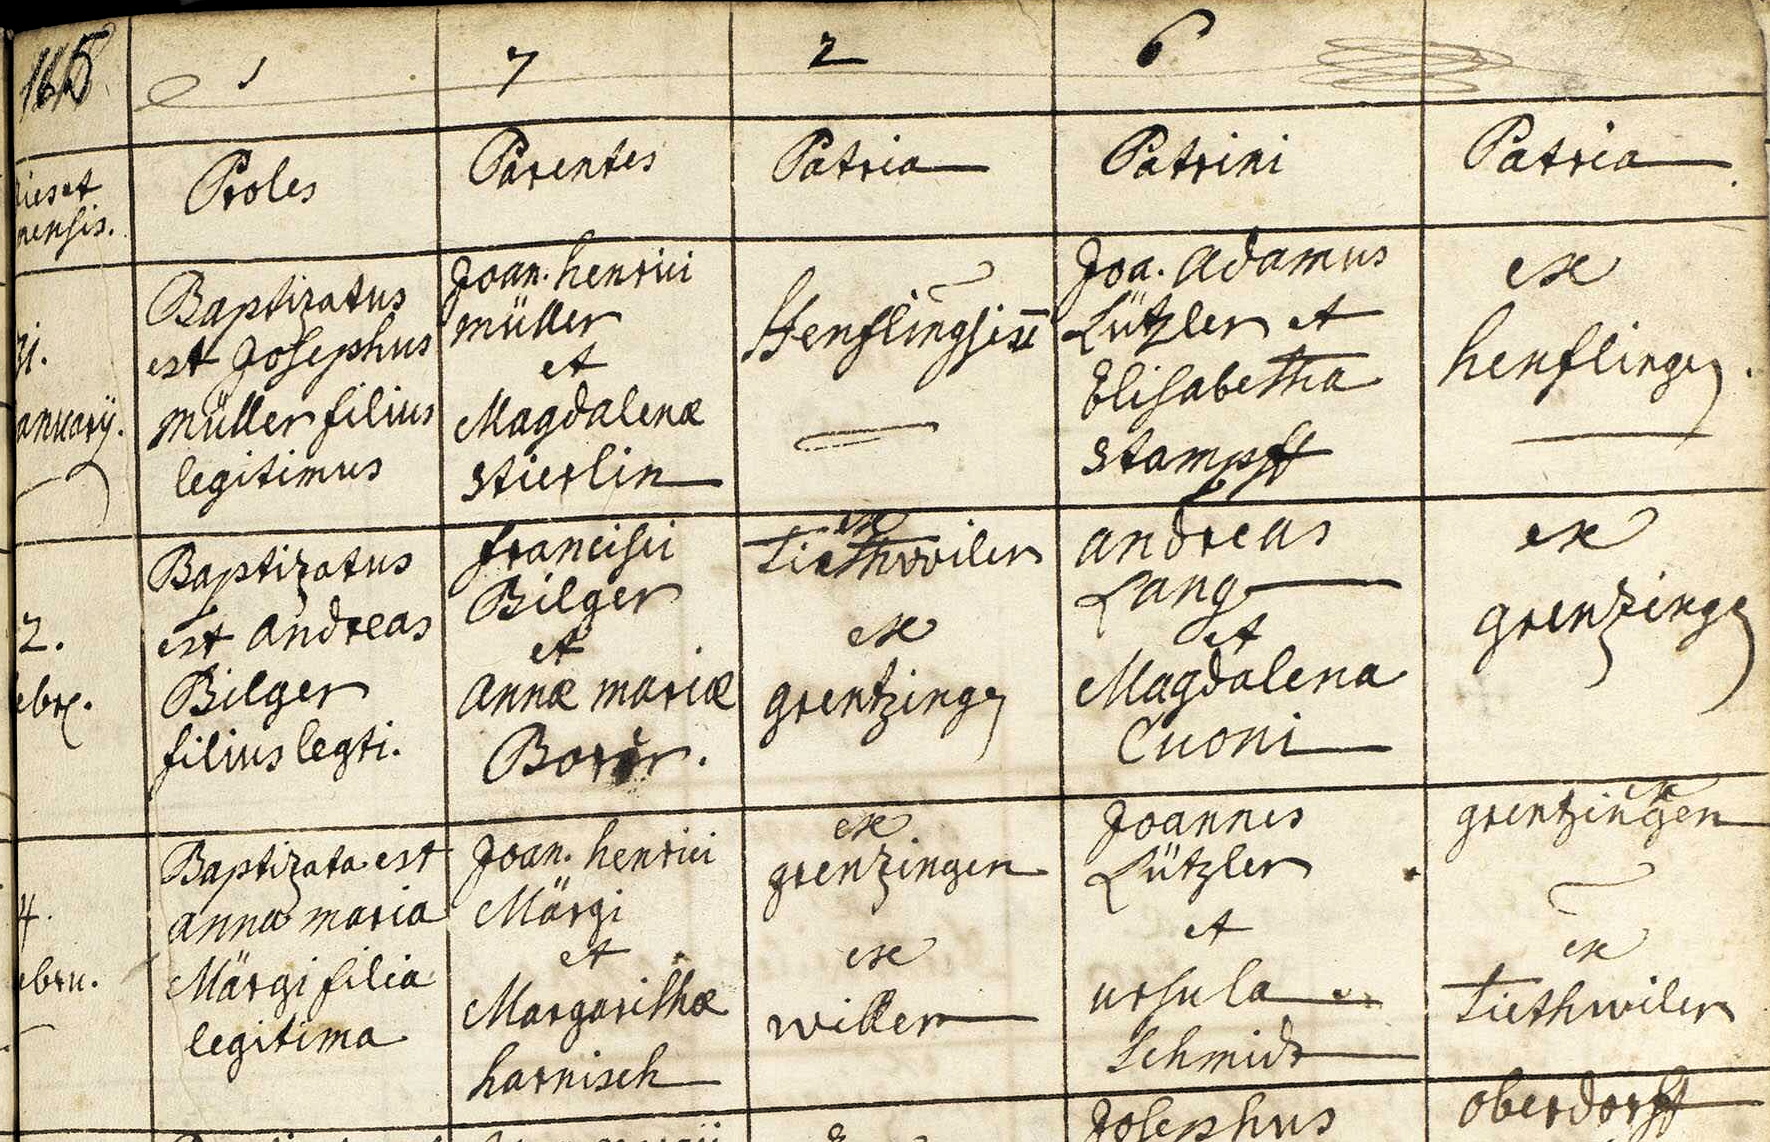 1 7 2 6
Dies et
mensis.
Proles
Parentes
Patria
Patrini
Patria
31.
anuarÿ.
Baptizatus
est Josephus
müller filius
legitimus
Joan. henrici
müller
et
Magdalenæ
stierlin
Henflingsis
Joa. adamus
Lützler et
Elisabetha
stampff
ex
henflingen.
2.
ebr.
Baptizatus
est andreas
Bilger
filius legti.
francisci
Bilger
et
annæ mariæ
Borer.
ex
Liethwiler
ex
grentzingen
andreas
Lang
et
Magdalena
Cuoni
ex
grenzingen
4.
ebru.
Baptizata est
anna maria
Märgi filia
legitima
Joan. henrici
Märgi
et
Margarithæ
harnisch
ex
grenzingen
ex
willer
Joannes
Lützler
et
ursula
schmidt
ex
grentzingen
ex
Liethwiler
Josephus
oberdorff